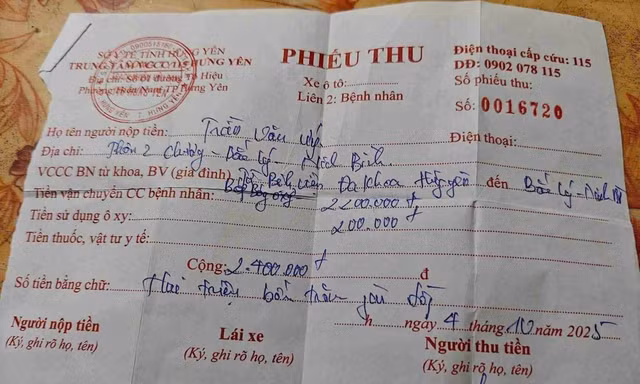 SỞ Y TẾ HƯNG YÊN
TRUNG TÂM VCCC 115 HƯNG YÊN
Địa chỉ: Số 01 đường Tô Hiệu
Phường Hiến Nam TP Hưng Yên
PHIẾU THU
Xe ô tô:
Liên 2: Bệnh nhân
Điện thoại cấp cứu: 115
DĐ: 0902 078 115
Số phiếu thu:
Số: 0016720
Họ tên người nộp tiền: Trần Văn
Điện thoại:
Địa chỉ: Thôn 2 - Bắc Lý - Ninh Bình
VCCC BN từ khoa, BV (gia đình) Bệnh viện Đa khoa Hưng Yên đến Bắc Lý - Ninh
Tiền vận chuyển CC bệnh nhân: 2200.000 đ
Tiền sử dụng ô xy: 200.000
Tiền thuốc, vật tư y tế:
Cộng: 2.400.000 đ đ
Số tiền bằng chữ: Hai triệu bốn trăm đồng
h ngày 4 tháng 10 năm 2025
Người nộp tiền
(Ký, ghi rõ họ, tên)
Lái xe
(Ký, ghi rõ họ, tên)
Người thu tiền
(Ký, ghi rõ họ, tên)